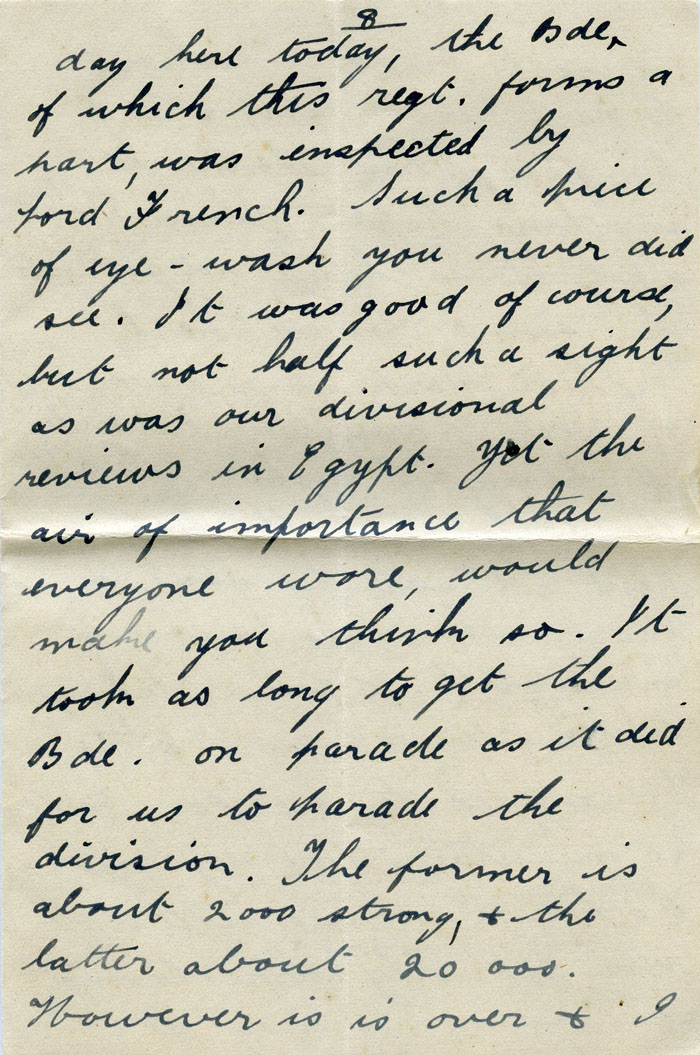 8
day here today, the Bde,
of which this regt. forms a
part, was inspected by
Lord French. Such a piece
of eye-wash you never did
see. It was good of course,
but not half such a sight
as was our divisional
reviews in Egypt. Yet the
air of importance that
everyone wore, would
make you think so. It
took as long to get the
Bde. on parade as it did
for us to parade the
division. The former is
about 2000 strong, & the
latter about 20 000.
However is is over & I